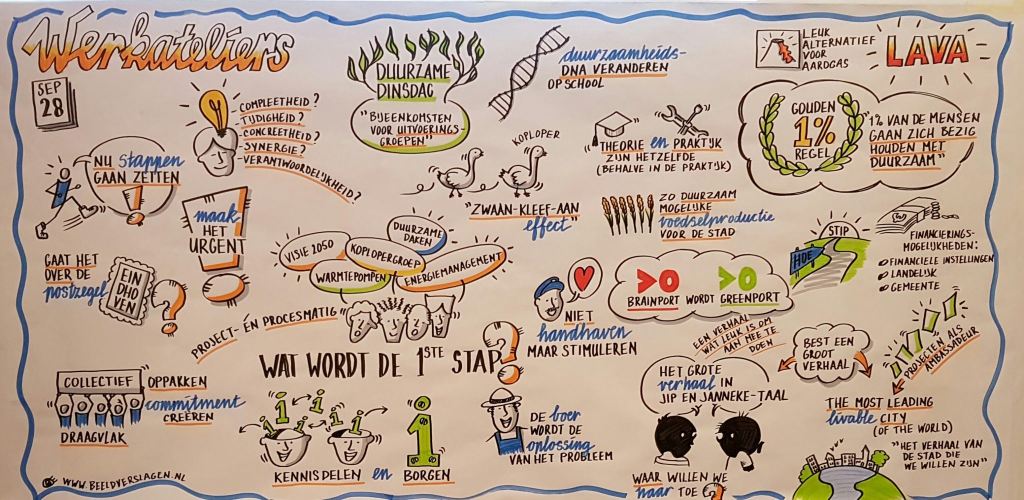 Werkateliers
SEP
28
NU stappen
GAAN ZETTEN
!
- COMPLEETHEID?
- TIJDIGHEID?
- CONCREETHEID?
- SYNERGIE?
- VERANTWOORDELIJKHEID?
maak
HET
URGENT
!
GAAT HET
OVER DE
postzegel
EIN
DHO
VEN
?
DUURZAME
DINSDAG
"BIJEENKOMSTEN
VOOR UITVOERINGS-
GROEPEN"
duurzaamheids-
DNA VERANDEREN
OP SCHOOL
KOPLOPER
"ZWAAN-KLEEF-AAN
effect"
THEORIE en PRAKTIJK
ZIJN HETZELFDE
(BEHALVE IN DE PRAKTIJK)
LEUK
ALTERNATIEF
VOOR
AARDGAS
LAVA
GOUDEN
1%
REGEL
"1% VAN DE MENSEN
GAAN ZICH BEZIG
HOUDEN MET
DUURZAAM"
ZO DUURZAAM
MOGELIJKE
voedselproductie
VOOR DE STAD
HOE
STIP
FINANCIERINGS-
MOGELIJKHEDEN:
FINANCIELE INSTELLINGEN
LANDELIJK
GEMEENTE
VISIE 2050
KOPLOPERGROEP
DUURZAME
DAKEN
WARMTEPOMPEN
ENERGIEMANAGEMENT
PROJECT- ÉN PROCESMATIG
WAT WORDT DE 1STE STAP?
NIET
handhaven
MAAR STIMULEREN
>0 >0
BRAINPORT WORDT GREENPORT
EEN VERHAAL
WAT LEUK IS OM
AAN MEE TE
DOEN
BEST EEN
GROOT
VERHAAL
PROJECTEN ALS
AMBASSADEUR
COLLECTIEF OPPAKKEN
commitment
CREËREN
DRAAGVLAK
i i i i
i
KENNISDELEN en BORGEN
DE boer
WORDT DE
oplossing
VAN HET PROBLEEM
HET GROTE
verhaal IN
JIP EN JANNEKE-TAAL
WAAR WILLEN WE
naar TOE?
THE MOST LEADING
livable CITY
(OF THE WORLD)
"HET VERHAAL VAN
DE STAD DIE
WE WILLEN ZIJN"
WWW.BEELDVERSLAGEN.NL